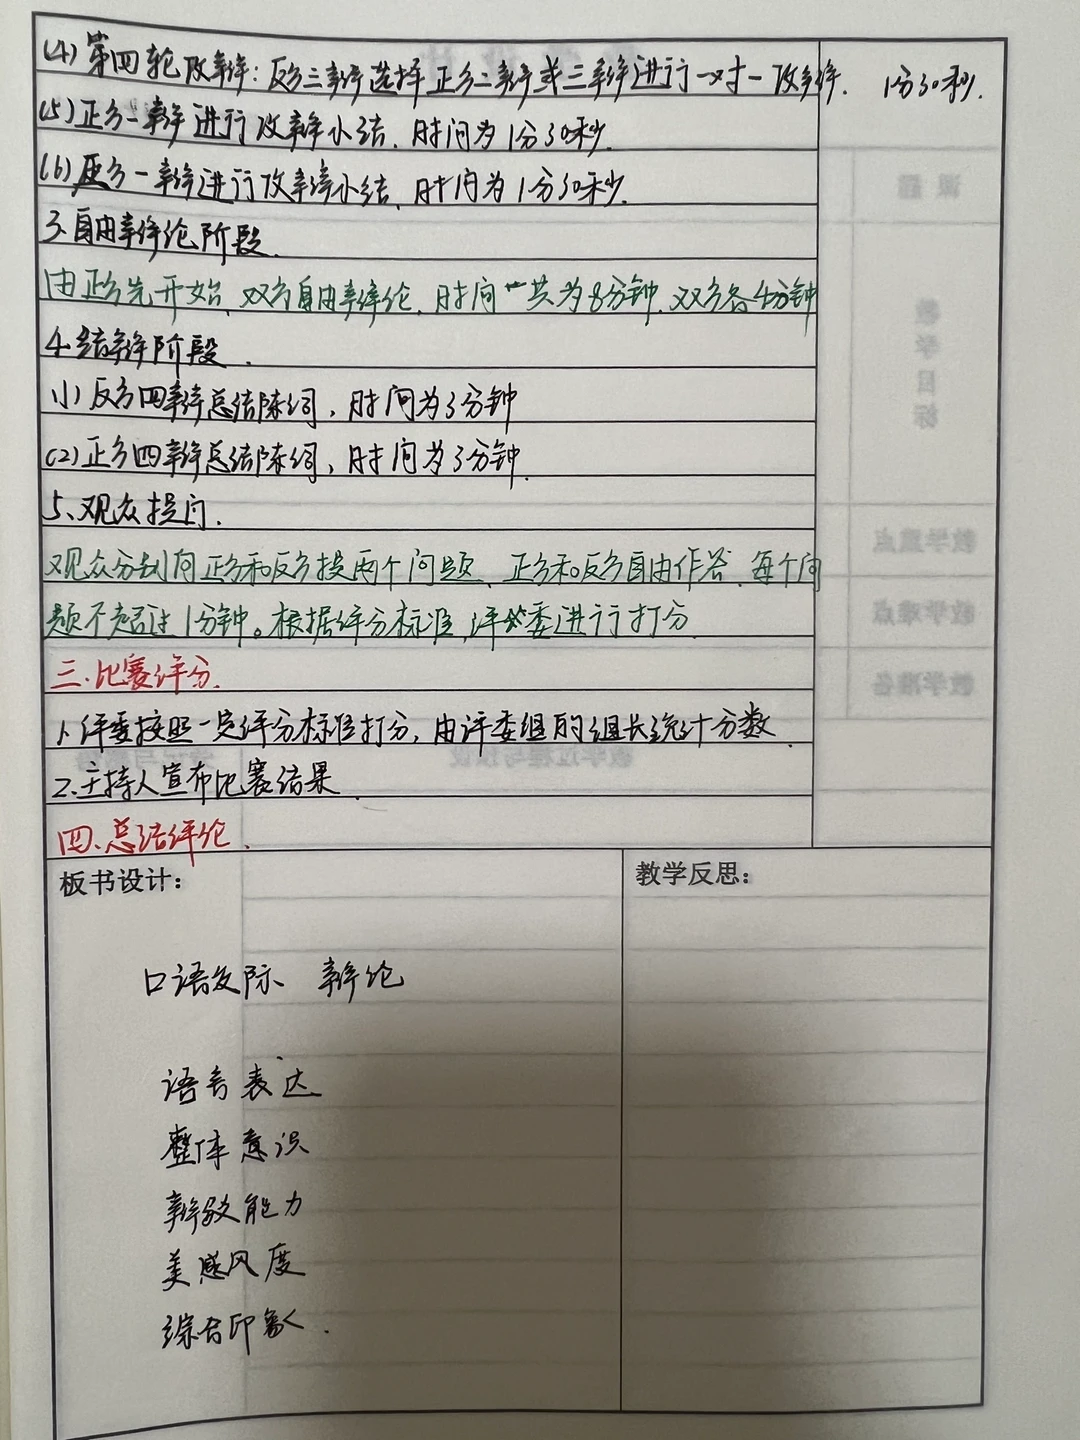 (4)第四轮攻辩:反方三辩选择正方二辩或三辩进行一对一攻辩. 1分30秒.
(5)正方一辩进行攻辩小结,时间为1分30秒.
(6)反方一辩进行攻辩小结,时间为1分30秒.
3.自由辩论阶段.
由正方先开始,双方自由辩论,时间一共为8分钟,双方各4分钟
4.结辩阶段.
(1)反方四辩总结陈词,时间为3分钟
(2)正方四辩总结陈词,时间为3分钟.
5、观众提问.
观众分别向正方和反方提两个问题、正方和反方自由作答,每个问
题不超过1分钟。根据评分标准,评委进行打分.
三.比赛评分.
1.评委按照一定评分标准打分,由评委组的组长统计分数.
2.主持人宣布比赛结果.
四、总结评论.
板书设计:
口语交际、辩论
语言表达
整体意识
辩驳能力
美感风度
综合印象.
教学反思: